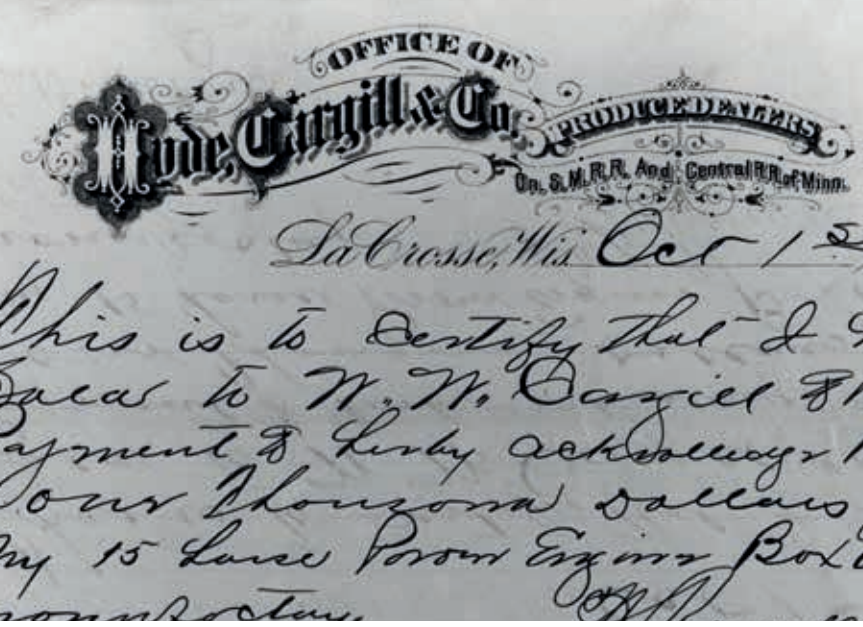 OFFICE OF
Hyde, Cargill & Co.
PRODUCE DEALERS
On. S. M. R. R. And Central R.R. of Minn.
La Crosse, Wis. Oct 1st
This is to certify that I
to W. W. Cargill &
ayment & herby acknolledge
our Thousand Dollars
my 15 horse Power Engine Box